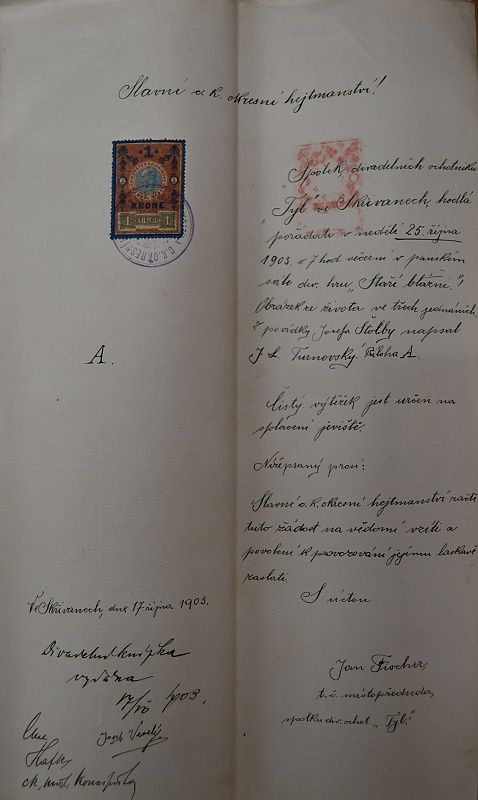 Slavné c. k. okresní hejtmanství!
1
KRONE
1 1898 1
C. K. OKRESNÍ
„Spolek divadelních ochotníků
„Tyl“ ve Skřivanech, hodlá
pořádati v neděli 25. října
1903 o 7 hod večerní v panském
sále div. hru „Staří blázni.“!
Obrázek ze života ve třech jednáních.
Z povídky Josefa Štolby napsal
J. L. Turnovský. Příloha A.
A
Čistý výtěžek jest určen na
splácení jeviště.
Nížepsaný prosí:
Slavné c. k. okresní hejtmanství račiž
tuto žádost na vědomí vzíti a
povolení k provozování jejímu laskavě
zaslati.
S úctou
Jan Fischer,
t. č. místopředseda,
spolku div. ochot. „Tyl.“
Ve Skřivanech, dne 17. října 1903.
Divadelní knížka
vydána
1903.
Josef Veselý